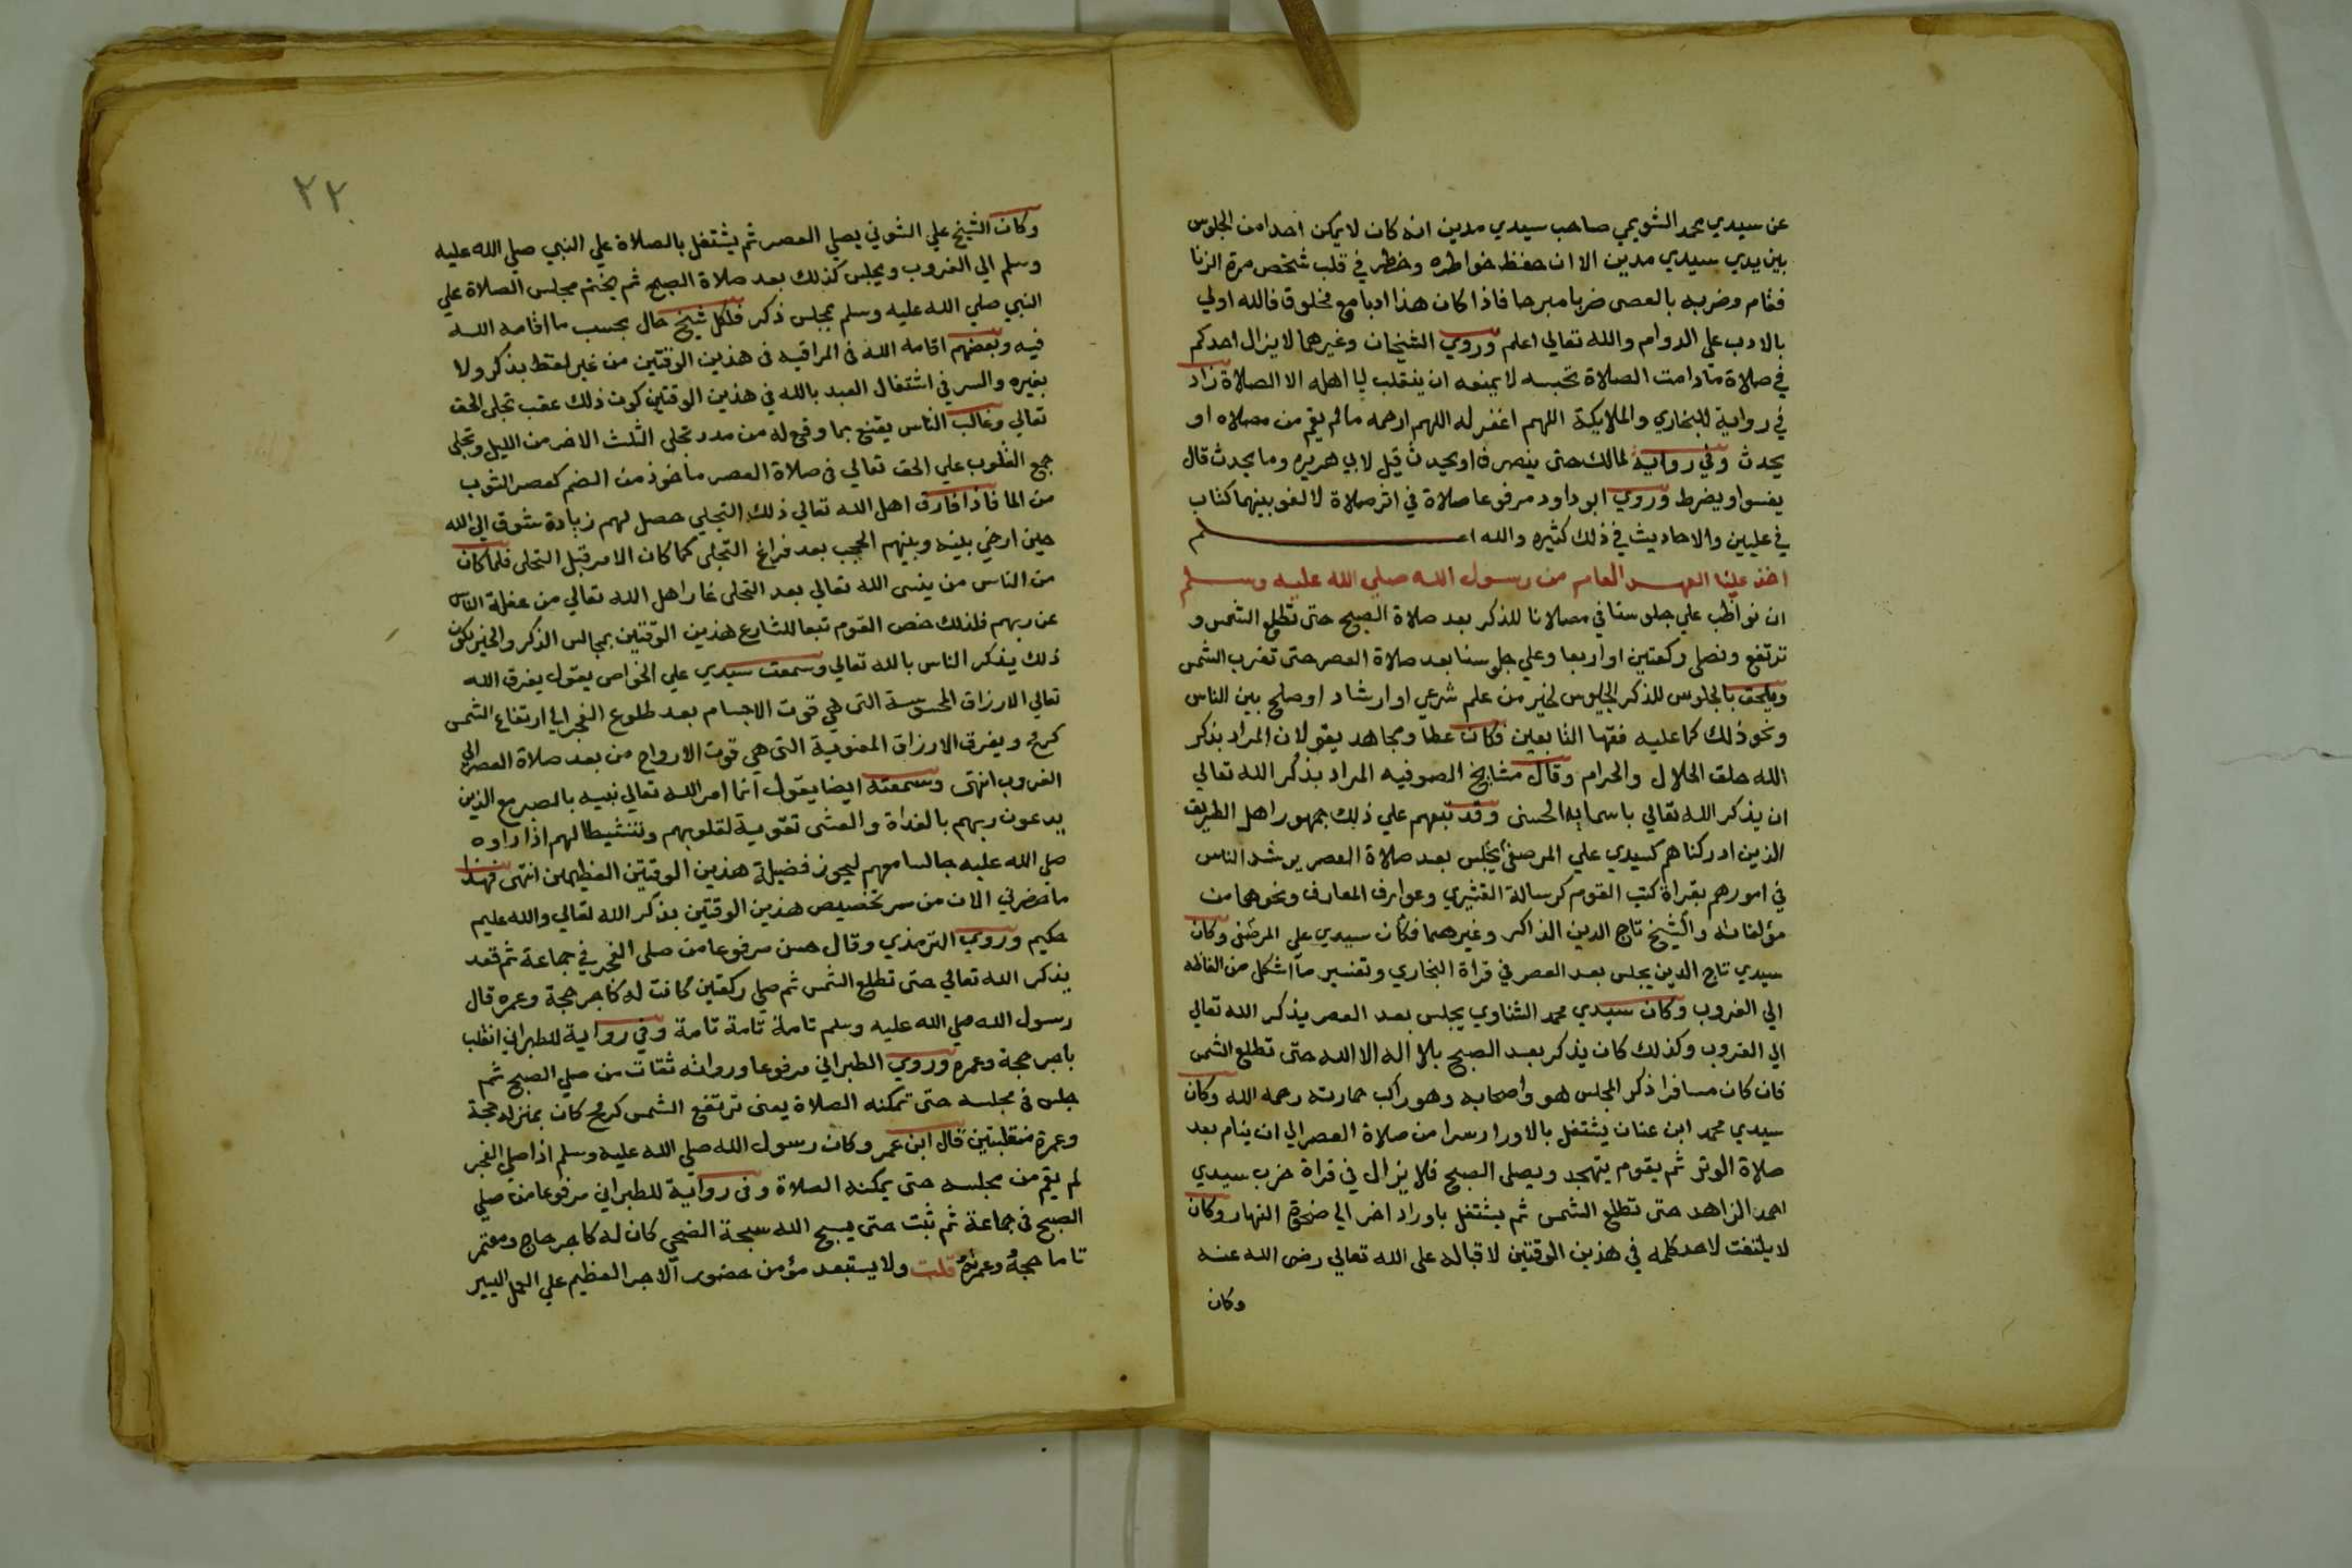 عن سيدي محمد الشويمي صاحب سيدي مدين انه كان لا يمكن احدا من الجلوس
بين يدي سيدي مدين الا ان حفظ خواطره وخطر في قلب شخص مرة الزنا
فقام وضربه بالعصى ضربا مبرحا فاذا كان هذا ادبا مع مخلوق فالله اولي
بالادب علي الدوام والله تعالي اعلم وروي الشيخان وغيرهما لا يزال احدكم
في صلاة ما دامت الصلاة تحبسه لا يمنعه ان ينقلب الي اهله الا الصلاة زاد
في رواية للبخاري والملايكة اللهم اغفر له اللهم ارحمه ما لم يقم من مصلاه او
يحدث وفي رواية لمالك حتى ينصرف او يحدث قيل لابي هريره وما يحدث قال
يفسوا ويضرط وروي ابو داود مرفوعا صلاة في اثر صلاة لا لغو بينهما كتاب
في عليين والاحاديث في ذلك كثيره والله اعلم
اخذ علينا العهد العام من رسول الله صلي الله عليه وسلم
ان نواظب علي جلوسنا في مصلانا للذكر بعد صلاة الصبح حتى تطلع الشمس و
ترتفع ونصلي ركعتين او اربعا وعلي جلوسنا بعد صلاة العصر حتى تغرب الشمس
ويلحق بالجلوس للذكر الجلوس لخير من علم شرعي او ارشاد او صلح بين الناس
ونحو ذلك كما عليه فقها التابعين فكان عطا ومجاهد يقولان المراد بذكر
الله حلق الحلال والحرام وقال مشايخ الصوفيه المراد بذكر الله تعالي
ان يذكر الله تعالي باسمايه الحسنى وقد تبعهم علي ذلك جمهور اهل الطريق
الذين ادركناهم كسيدي علي المرصفي يجلس بعد صلاة العصر يرشد الناس
في امورهم بقراة كتب القوم كرسالة القشيري وعوارف المعارف ونحوهما من
مؤلفاته والشيخ تاج الدين الذاكر وغيرهما فكان سيدي علي المرصفي وكان
سيدي تاج الدين يجلس بعد العصر في قراة البخاري وتفسير ما اشكل من الفاظه
الي الغروب وكان سيدي محمد الشناوي يجلس بعد العصر يذكر الله تعالي
الي الغروب وكذلك كان يذكر بعد الصبح بلا اله الا الله حتى تطلع الشمس
فان كان مسافرا ذكر المجلس هو واصحابه وهو راكب حمارته رحمه الله وكان
سيدي محمد ابن عنان يشتغل بالاوراد سرا من صلاة العصر الي ان ينام بعد
صلاة الوتر ثم يقوم يتهجد ويصلي الصبح فلا يزال في قراة حزب سيدي
احمد الزاهد حتى تطلع الشمس ثم يشتغل باوراد اخر الي ضحوة النهار وكان
لا يلتفت لاحد كلمه في هذين الوقتين لاقباله على الله تعالي رضى الله عنه
وكان
٢٢
وكان الشيخ علي الشوني يصلي العصر ثم يشتغل بالصلاة علي النبي صلي الله عليه
وسلم الي الغروب ويجلس كذلك بعد صلاة الصبح ثم يختم مجلس الصلاة علي
النبي صلي الله عليه وسلم بمجلس ذكر فلكل شيخ حال بحسب ما اقامه الله
فيه وبعضهم اقامه الله في المراقبه في هذين الوقتين من غير لفظ بذكر ولا
بغيره والسر في اشتغال العبد بالله في هذين الوقتين كون ذلك عقب تجلي الحق
تعالي وغالب الناس يقنع بما وقع له من مدد تجلي الثلث الاخر من الليل وتجلي
جمع القلوب علي الحق تعالي في صلاة العصر ماخوذ من الضم كعصر الثوب
من الما فاذا فارق اهل الله تعالي ذلك التجلي حصل لهم زيادة شوق الي الله
حين ارخي بينه وبينهم الحجب بعد فراغ التجلي كما كان الامر قبل التجلي فلما كان
من الناس من ينسى الله تعالي بعد التجلي غار اهل الله تعالي من غفلة الناس
عن ربهم فلذلك خص القوم تبعا للشارع هذين الوقتين بمجالس الذكر والخير لكون
ذلك يذكر الناس بالله تعالي وسمعت سيدي علي الخواص يقول يفرق الله
تعالي الارزاق المحسوسة التي هي قوت الاجسام بعد طلوع الفجر الي ارتفاع الشمس
كرمح ويفرق الارزاق المعنوية التي هي قوت الارواح من بعد صلاة العصر الي
الغروب انتهى وسمعته ايضا يقول انما امر الله تعالي نبيه بالصبر مع الذين
يدعون ربهم بالغداة والعشى تقوية لقلوبهم وتنشيطا لهم اذا راوه
صلي الله عليه جالسا معهم ليحوز فضيلة هذين الوقتين العظيمين انتهى فهذا
ما حضرني الان من سر تخصيص هذين الوقتين بذكر الله تعالي والله عليم
حكيم وروي الترمذي وقال حسن مرفوعا من صلى الفجر في جماعة ثم قعد
يذكر الله تعالي حتى تطلع الشمس ثم صلي ركعتين كانت له كاجر حجة وعمره قال
رسول الله صلي الله عليه وسلم تامة تامة تامة وفي رواية للطبراني انقلب
باجر حجة وعمره وروي الطبراني مرفوعا ورواته ثقات من صلي الصبح ثم
جلس في مجلسه حتى تمكنه الصلاة يعنى ترتفع الشمس كرمح كان بمنزلة حجة
وعمرة متقبلتين قال ابن عمر وكان رسول الله صلي الله عليه وسلم اذا صلي الفجر
لم يقم من مجلسه حتى يمكنه الصلاة وفي رواية للطبراني مرفوعا من صلي
الصبح في جماعة ثم ثبت حتى يسبح الله سبحة الضحي كان له كاجر حاج ومعتمر
تاما حجه وعمرته قلت ولا يستبعد مؤمن حضور الاجر العظيم علي العمل اليسير